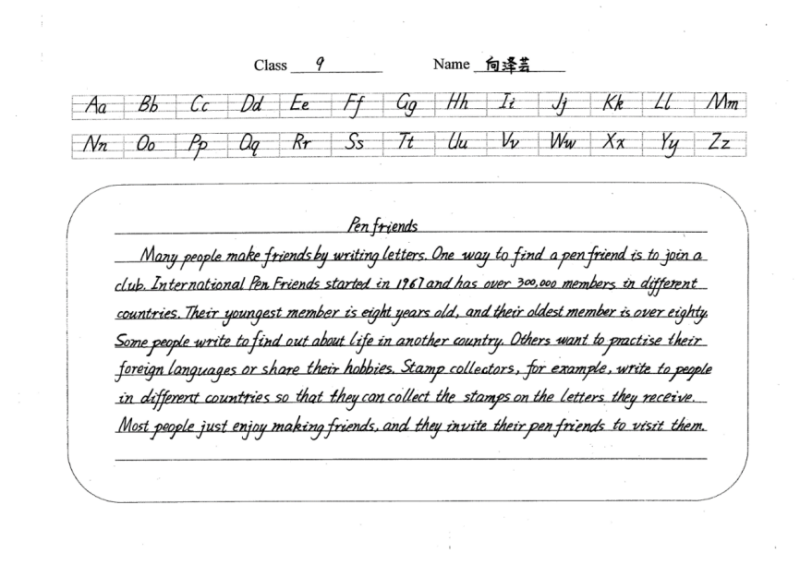 Class 9 Name 向泽芸
Aa Bb Cc Dd Ee Ff Gg Hh Ii Jj Kk Ll Mm
Nn Oo Pp Qq Rr Ss Tt Uu Vv Ww Xx Yy Zz
Pen friends
Many people make friends by writing letters. One way to find a pen friend is to join a
club. International Pen Friends started in 1967 and has over 300,000 members in different
countries. Their youngest member is eight years old, and their oldest member is over eighty.
Some people write to find out about life in another country. Others want to practise their
foreign languages or share their hobbies. Stamp collectors, for example, write to people
in different countries so that they can collect the stamps on the letters they receive.
Most people just enjoy making friends, and they invite their pen friends to visit them.